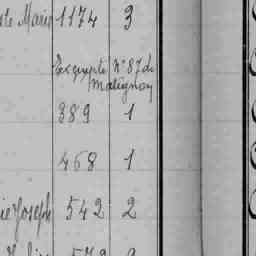 Marie 1174 3
Exempte N° 87 de
Matignon
389 1
468 1
Joseph 542 2